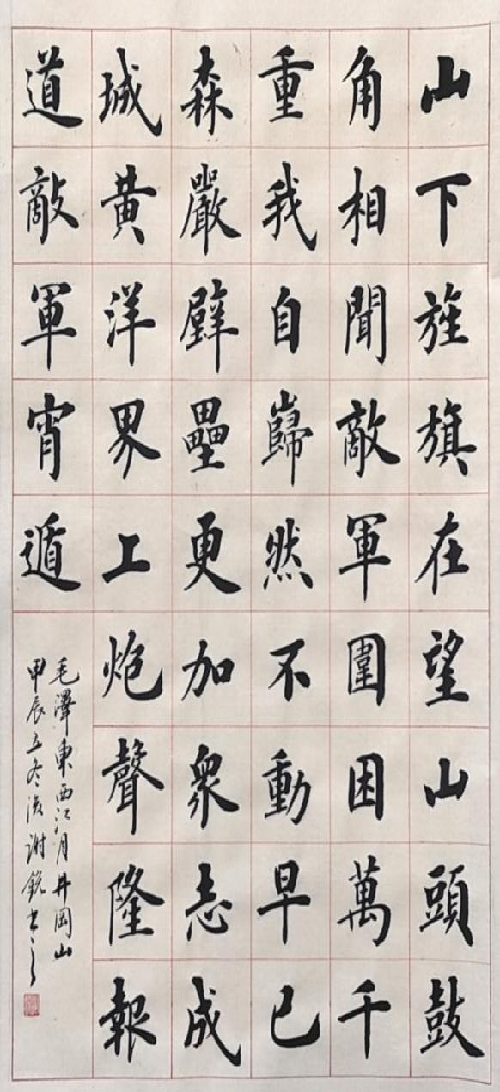 山下旌旗在望山頭鼓
角相聞敵軍圍困萬千
重我自巋然不動早已
森嚴壁壘更加衆志成
城黃洋界上炮聲隆報
道敵軍宵遁
毛澤東西江月井岡山
甲辰立冬後謝銳書之